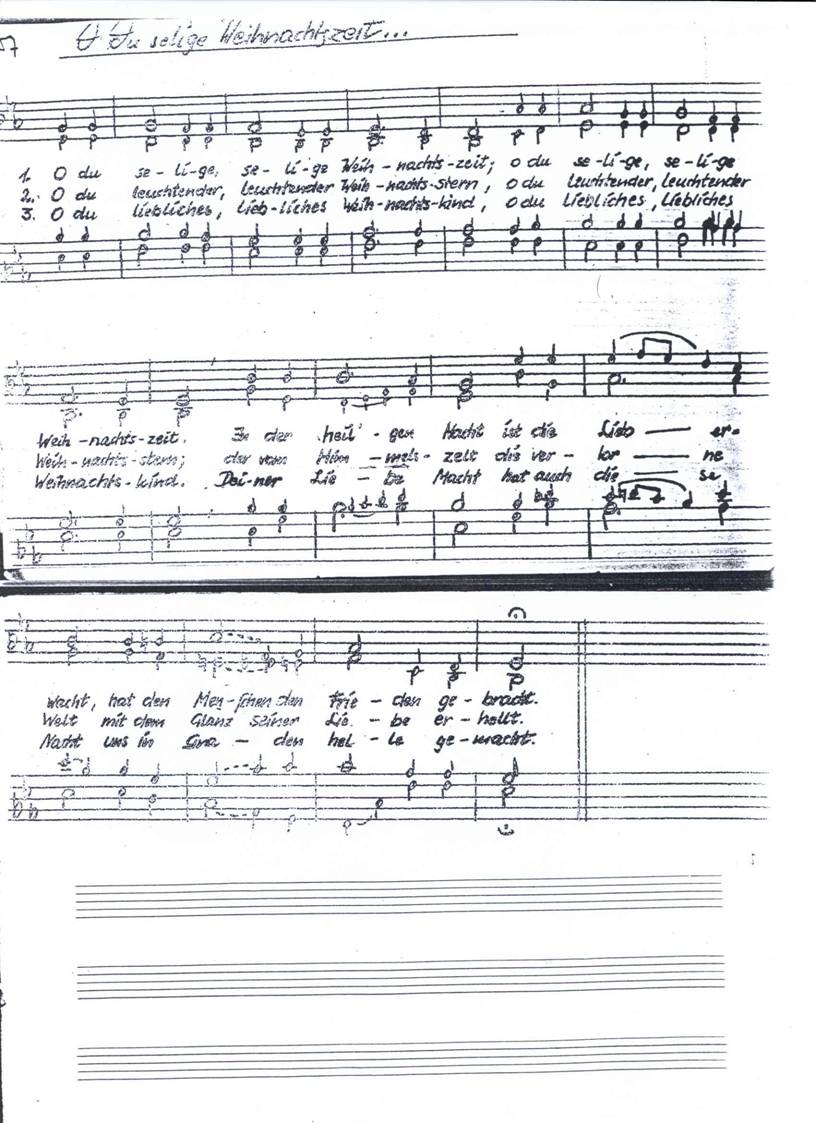 57
O du selige Weihnachtszeit...
1. O du se-li-ge, se-li-ge Weih-nachts-zeit; o du se-li-ge, se-li-ge
2. O du leuchtender, leuchtender Weih-nachts-stern, o du leuchtender, leuchtender
3. O du liebliches, lieb-liches Weih-nachts-kind, o du liebliches, liebliches
Weih-nachts-zeit. In der heil'-gen Nacht ist die Lieb — er-
Weih-nachts-stern; der vom Him-mels-zelt die ver-lor — ne
Weihnachts-kind. Dei-ner Lie-be Macht hat auch die — se
wacht, hat den Men-schen den Frie-den ge-bracht.
Welt mit dem Glanz seiner Lie-be er-hellt.
Nacht uns in Gna-den hel-le ge-macht.